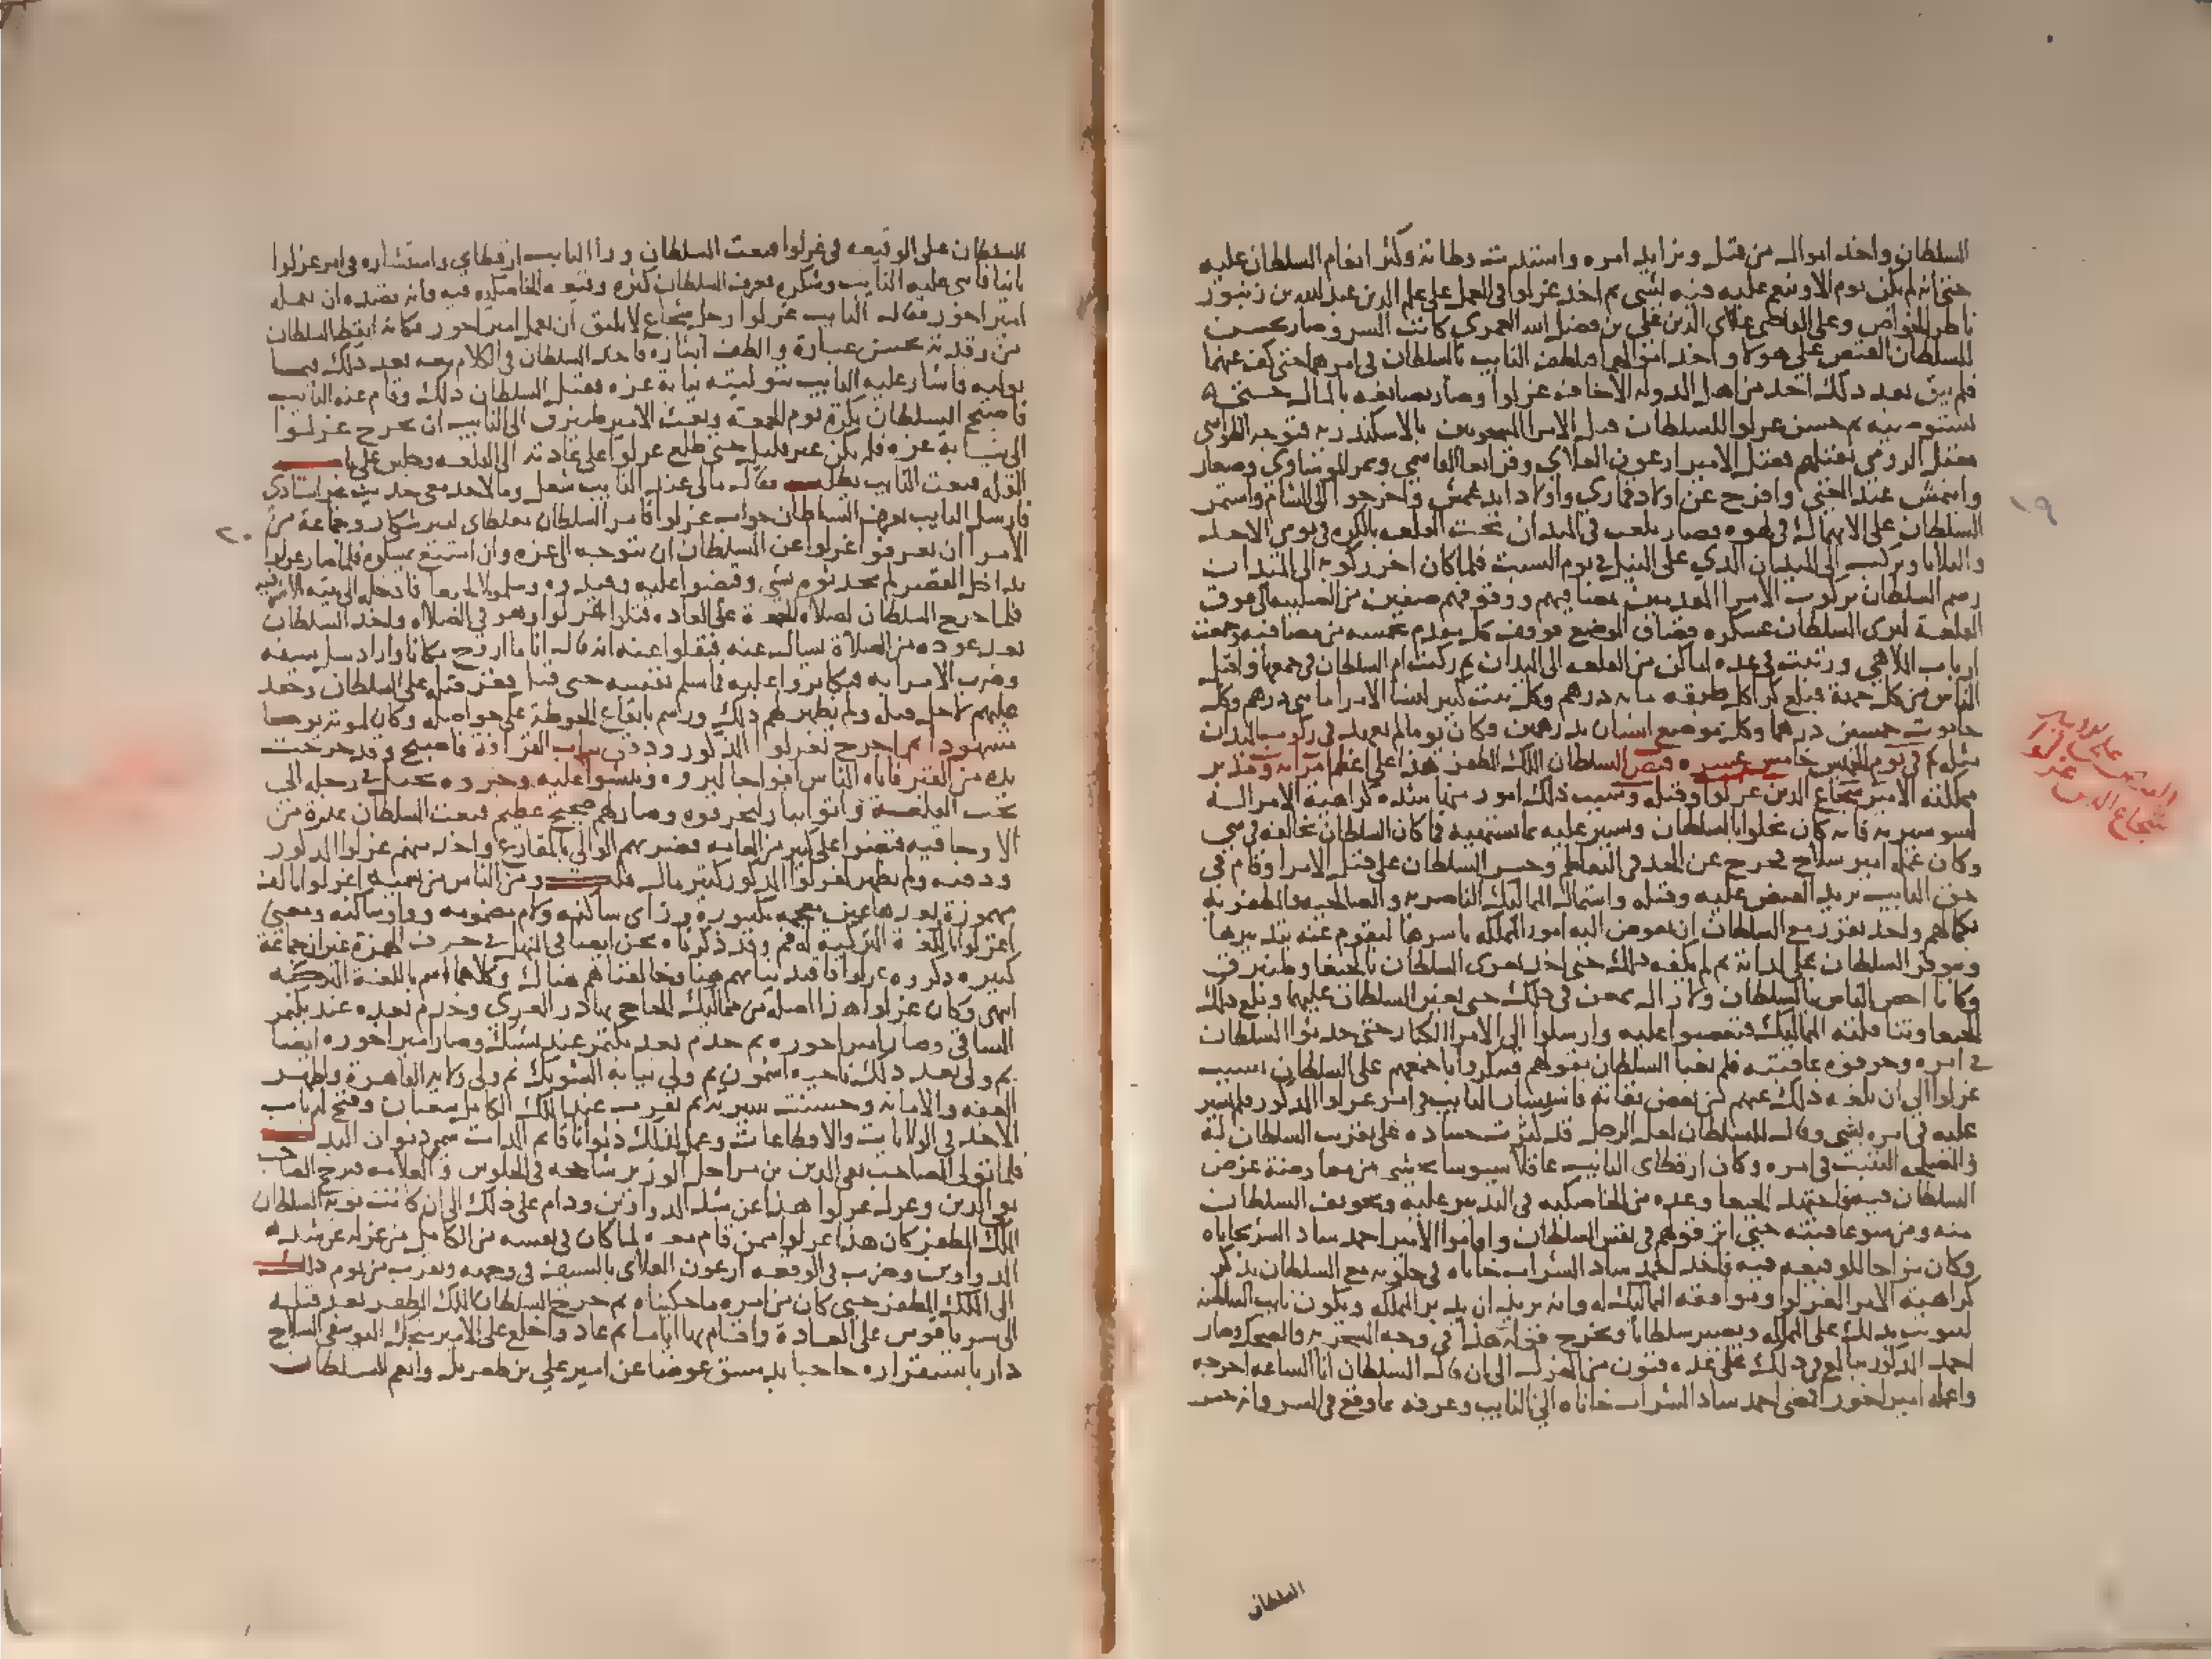 السلطان واخذ امواله من قتل وتزايد امره واشتدت وطاته وكثر انعام السلطان عليه
حتى انه لم يكن يوم الا وينعم عليه فيه بشى ثم اخذ غرلوا في العمل على علم الدين عبد الله بن زنبور
ناظر الخواص وعلى القاضى علاى الدين على بن فضل الله العمري كاتب السر وصار يحسن
للسلطان القبض على هولا واخذ اموالهم فتلطف النايب بالسلطان في امرهما حتى كف عنهما
فلم يبق بعد ذلك احد من اهل الدولة الا خاف غرلوا وصار يصانعه بالمال حتى
ثم حسن غرلوا للسلطان قتل الامرا المسجونين بالاسكندرية فتوجه الطواشى
مقبل الرومي بقتلهم فقتل الامير ارغون العلاي وقرابغا القاسمي وتمر الموساوي وصمغار
وايتمش عبد الغني وافرج عن اولاد قماري واولاد ايدغمش واخرجوا الى الشام واستمر
السلطان على الانهماك في لهوه فصار يلعب في الميدان تحت القلعه بالكره في يومي الاحد
والثلاثا ويركب الى الميدان الذي على النيل في يوم السبت فلما كان اخر ركوبه الى الميدان
رسم السلطان بركوب الامرا المقدمين بمضافيهم ووقوفهم صفين من الصليبه الى فوق
القلعة ليرى السلطان عسكره فضاق الموضع فوقف كل مقدم بخمسه من مضافيه وجمعت
ارباب الملاهي ورتبت في عده اماكن من القلعه الى الميدان ثم ركبت ام السلطان في جمعها واقبل
الناس من كل جهة فبلغ كرا كل طبقه مايه درهم وكل بيت كبير لنسا الامرا مايتي درهم وكل
حانوت خمسين درهما وكل موضع انسان بدرهمين وكان يوما لم يعهد في ركوب الميدان
مثله ثم في يوم الخميس خامس عشره قبض السلطان الملك المظفر هذا على اعظم امرايه ومدبر
مملكته الامير شجاع الدين غرلوا وقتله وسبب ذلك امور منها شده كراهية الامرا له
لسو سيرته فانه كان يخلوا بالسلطان ويشير عليه بما يشتهيه فما كان السلطان يخالفه في شي
وكان عمله امير سلاح فخرج عن الحد في التعاظم وجسر السلطان على قتل الامرا وقام في
حق النايب يريد القبض عليه وقتله واستمال المماليك الناصريه والصالحيه والمظفريه
بكمالهم واخذ يقرر مع السلطان ان يفوض اليه امور المملكه باسرها ليقوم عنه بتدبيرها
ويتوفر السلطان على لذاته ثم لم يكفه ذلك حتى اخذ يغرى السلطان بالجيبغا وطنيرق
وكانا اخص الناس بالسلطان ولا زال يمعن في ذلك حتى تغير السلطان عليهما وبلغ ذلك
الجيبغا وتناقلته المماليك فتعصبوا عليه وارسلوا الى الامرا الكبار حتى حدثوا السلطان
في امره وخوفوه عاقبته فلم يعبا السلطان بقولهم فتنكروا باجمعهم على السلطان بسبب
غرلوا الى ان بلغه ذلك عنهم من بعض ثقاته فاستشار النايب في امر غرلوا المذكور فلم يشر
عليه في امره بشى وقال للسلطان لعل الرجل قد كثرت حساده على تقريب السلطان له
والمصلحه التثبت في امره وكان ارقطاى النايب عاقلا سيوسا يخشى من معارضة غرض
السلطان فيه فاجتهد الجيبغا وعده من الخاصكيه في التدبير عليه وتخويف السلطان
منه ومن سو عاقبته حتى اثر قولهم في نفس السلطان واقاموا الامير احمد شاد الشرابخاناه
وكان مزاحا للوقيعه فيه فاخذ احمد شاد الشراب خاناه في خلوته مع السلطان يذكر
كراهية الامرا لغرلوا وموافقه المماليك له وانه يريد ان يدبر المملكه ويكون نايب السلطنه
ليتوثب بذلك على المملكه ويصير سلطانا ويخرج قوله هذا في وجه السخريه والضحك وصار
احمد المذكور يبالغ في ذلك على عده فنون من الهزل الى ان قال السلطان انا الساعه اخرجه
واعمله امير اخور فمضى احمد شاد الشراب خاناه الى النايب وعرفه بما وقع في السر وانه جسر
السلطان
١٩
القبض على الامير
شجاع الدين غرلو
السلطان على الوقيعه في غرلوا فبعث السلطان ورا النايب ارقطاي واستشاره في امر غرلوا
ثانيا فاثنى عليه النايب وشكره فعرفه السلطان كثره وقيعه الخاصكيه فيه وانه قصده ان يعمله
امير اخور فقال النايب غرلوا رجل شجاع لا يليق ان يعمل امير اخور فكانه ايقظ السلطان
من رقدته بحسن عبارة والطف اشاره فاخذ السلطان في الكلام معه بعد ذلك فيما
يوليه فاشار عليه النايب بتوليته نيابة غزه فقبل السلطان ذلك وقام عنه النايب
فاصبح السلطان بكرة يوم الجمعة وبعث الامير طنيرق الى النايب ان يخرج غرلوا
الى نيابة غزه فلم يكن غير قليل حتى طلع غرلوا على عادته الى القلعه وجلس على باب
القله فبعث النايب يطلبه فقال مالى عند النايب شغل وما لاحد معى حديث غير استاذي
فارسل النايب يعرف السلطان جواب غرلوا فامر السلطان مغلطاى امير شكار وجماعة من
الامرا ان يعرفوا غرلوا عن السلطان ان يتوجه الى غزه وان امتنع يمسكوه فلما صار غرلوا
بداخل القصر لم يحدثوه بشي وقبضوا عليه وقيدوه وسلموه لالجيبغا فادخله الى بيته بالاشرفيه
فلما خرج السلطان لصلاة الجمعة على العاده قتلوا غرلوا وهو في الصلاه واخذ السلطان
بعد عوده من الصلاة يسال عنه فنقلوا عنه انه قال انا ما اروح مكانا واراد سل سيفه
وضرب الامرا به فتكاثروا عليه فما سلم نفسه حتى قتل فعز قتله على السلطان وحقد
عليهم لاجل قتله ولم يظهر لهم ذلك ورسم بايقاع الحوطة على حواصله وكان لموته يوما
مشهودا ثم اخرج بغرلوا المذكور ودفن بباب القرافة فاصبح وقد خرجت
يده من القبر فاتاه الناس افواجا ليروه ونبشوا عليه وجروه بحبل في رجله الى
تحت القلعة واتوا بنار ليحرقوه وصار لهم ضجيج عظيم فبعث السلطان عدة من
الاوجاقيه فقبضوا على كثير من العامه فضربهم الوالي بالمقارع واخذ منهم غرلوا المذكور
ودفنه ولم يظهر لغرلوا المذكور كثير مال قلت ومن الناس من يسميه اغرلوا بالف
مهموزة وبعدها غين معجمه مكسورة وزاى ساكنه ولام مضمومه وواو ساكنه ومعنى
اغزلوا باللغة التركية له فم وقد ذكرناه نحن ايضا في المنهل في حرف الهمزة غير ان جماعة
كثيره ذكروه غرلوا فاقتدينا بهم هنا وخالفناهم هناك وكلاهما اسم باللغة التركيه
انتهى وكان غرلوا هذا اصله من مماليك الحاج بهادر العزى وخدم بعده عند بكتمر
الساقي وصار امير اخوره ثم خدم بعد بكتمر عند بشتك وصار امير اخوره ايضا
ثم ولى بعد ذلك ناحيه اشمون ثم ولى نيابة الشوبك ثم ولى ولاية القاهرة واظهر
العفه والامانه وحسنت سيرته ثم تقرب عند الملك الكامل شعبان وفتح له باب
الاخذ في الولايات والاقطاعات وعمل لذلك ديوانا قايم الذات سمي ديوان البدل
فلما تولى الصاحب تقى الدين بن مراجل الوزر شاححه في الجلوس والعلامه فترجح الصاحب
تقي الدين وعزل غرلوا هذا عن شد الدواوين ودام على ذلك الى ان كانت نوبة السلطان
الملك المظفر كان هذا غرلوا ممن قام معه لما كان في نفسه من الكامل من عزله عن شد
الدواوين وضرب في الوقعه ارغون العلاى بالسيف في وجهه وتقرب من يوم ذلك
الى الملك المظفر حتى كان من امره ما حكيناه ثم خرج السلطان الملك المظفر بعد قتله
الى سرياقوس على العادة واقام بها اياما ثم عاد واخلع على الامير منجك اليوسفى السلاح
دار باستقراره حاجبا بدمشق عوضا عن امير علي بن طغريل وانعم السلطان
٢٠